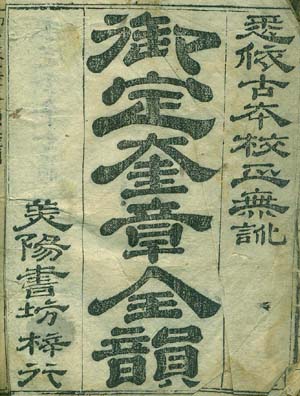 悉依古本校正無訛
御定奎章全韻
美陽書坊梓行